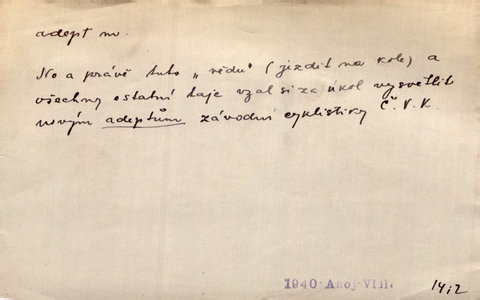 adept m.
No a právě tuto „vědu“ (jezdit na kole) a
všechny ostatní taje vzal si za úkol vysvětlit
novým adeptům závodní cyklistiky Č. V. K.
1940-Ahoj-VIII.
14/2